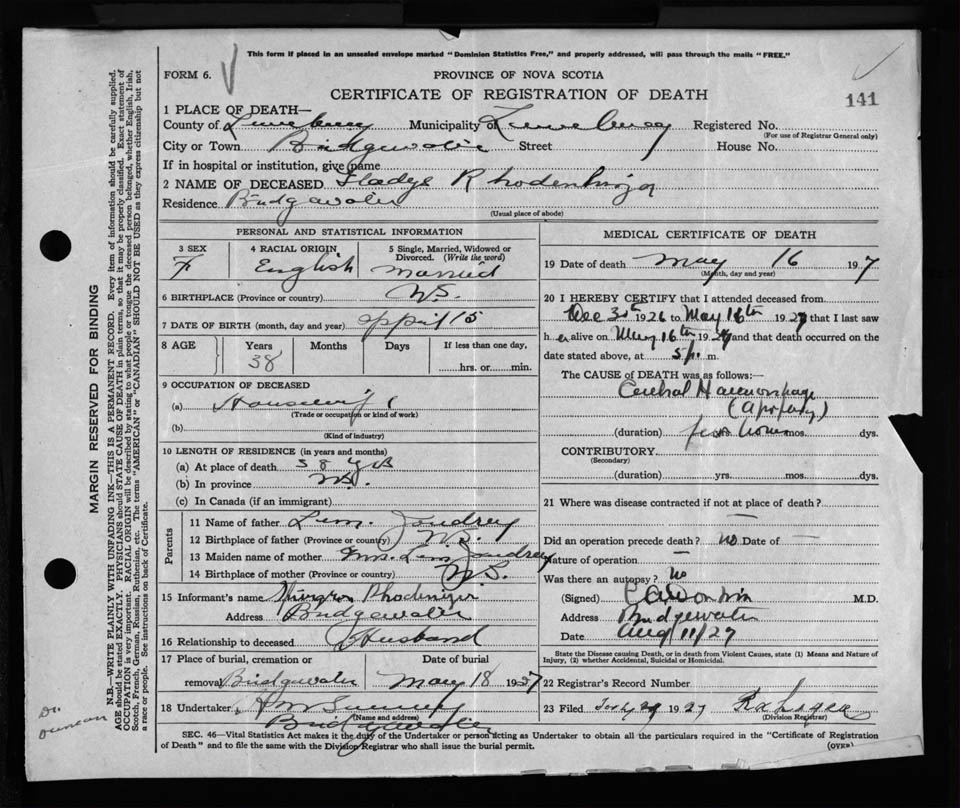 This form if placed in an unsealed envelope marked "Dominion Statistics Free," and properly addressed, will pass through the mails "FREE."
FORM 6.
PROVINCE OF NOVA SCOTIA
CERTIFICATE OF REGISTRATION OF DEATH
141
1 PLACE OF DEATH—
County of Lunenburg Municipality of Lunenburg Registered No.
(For use of Registrar General only)
City or Town Bridgewater Street House No.
If in hospital or institution, give name
2 NAME OF DECEASED Gladys Rhodenhizer
Residence Bridgewater
(Usual place of abode)
PERSONAL AND STATISTICAL INFORMATION
3 SEX 4 RACIAL ORIGIN 5 Single, Married, Widowed or Divorced. (Write the word)
F English Married
6 BIRTHPLACE (Province or country) N.S.
7 DATE OF BIRTH (month, day and year) April 15
8 AGE Years Months Days If less than one day,
38 hrs. or min.
9 OCCUPATION OF DECEASED
(a) Housewife
(Trade or occupation or kind of work)
(b)
(Kind of industry)
10 LENGTH OF RESIDENCE (in years and months)
(a) At place of death 38 yrs
(b) In province N.S.
(c) In Canada (if an immigrant)
Parents
11 Name of father Lem. Joudrey
12 Birthplace of father (Province or country) N.S.
13 Maiden name of mother Mrs. Lem Joudrey
14 Birthplace of mother (Province or country) N.S.
15 Informant's name Rhodenizer
Address Bridgewater
16 Relationship to deceased Husband
17 Place of burial, cremation or removal Bridgewater Date of burial May 18 1927
18 Undertaker
(Name and address)
Bridgewater
MEDICAL CERTIFICATE OF DEATH
19 Date of death May 16 1927
(Month, day and year)
20 I HEREBY CERTIFY that I attended deceased from
Dec 1926 to May 16th 1927 that I last saw
her alive on May 16th 1927 and that death occurred on the
date stated above, at 5 p. m.
The CAUSE OF DEATH was as follows:—
Cerebral Haemorrhage
(Apoplexy)
(duration) few hours mos. dys.
CONTRIBUTORY
(Secondary)
(duration) yrs. mos. dys.
21 Where was disease contracted if not at place of death? —
Did an operation precede death? No Date of —
Nature of operation —
Was there an autopsy? No
(Signed) M.D.
Address Bridgewater
Date Aug 11/27
State the Disease causing Death, or in death from Violent Causes, state (1) Means and Nature of Injury, (2) whether Accidental, Suicidal or Homicidal.
22 Registrar's Record Number
23 Filed 1927
(Division Registrar)
SEC. 46—Vital Statistics Act makes it the duty of the Undertaker or person acting as Undertaker to obtain all the particulars required in the "Certificate of Registration
of Death" and to file the same with the Division Registrar who shall issue the burial permit.
(OVER)
MARGIN RESERVED FOR BINDING
N.B.—WRITE PLAINLY WITH UNFADING INK—THIS IS A PERMANENT RECORD. Every item of information should be carefully supplied.
AGE should be stated EXACTLY. PHYSICIANS should STATE CAUSE OF DEATH in plain terms, so that it may be properly classified. Exact statement of
OCCUPATION is very important. RACIAL ORIGIN will be described by stating to what people or tongue the deceased person belonged, whether English, Irish,
Scotch, French, German, Russian, Ruthenian, etc. The terms "AMERICAN" or "CANADIAN" SHOULD NOT BE USED as they express citizenship but not
a race or people. See instructions on back of Certificate.
Dr.
Duncan